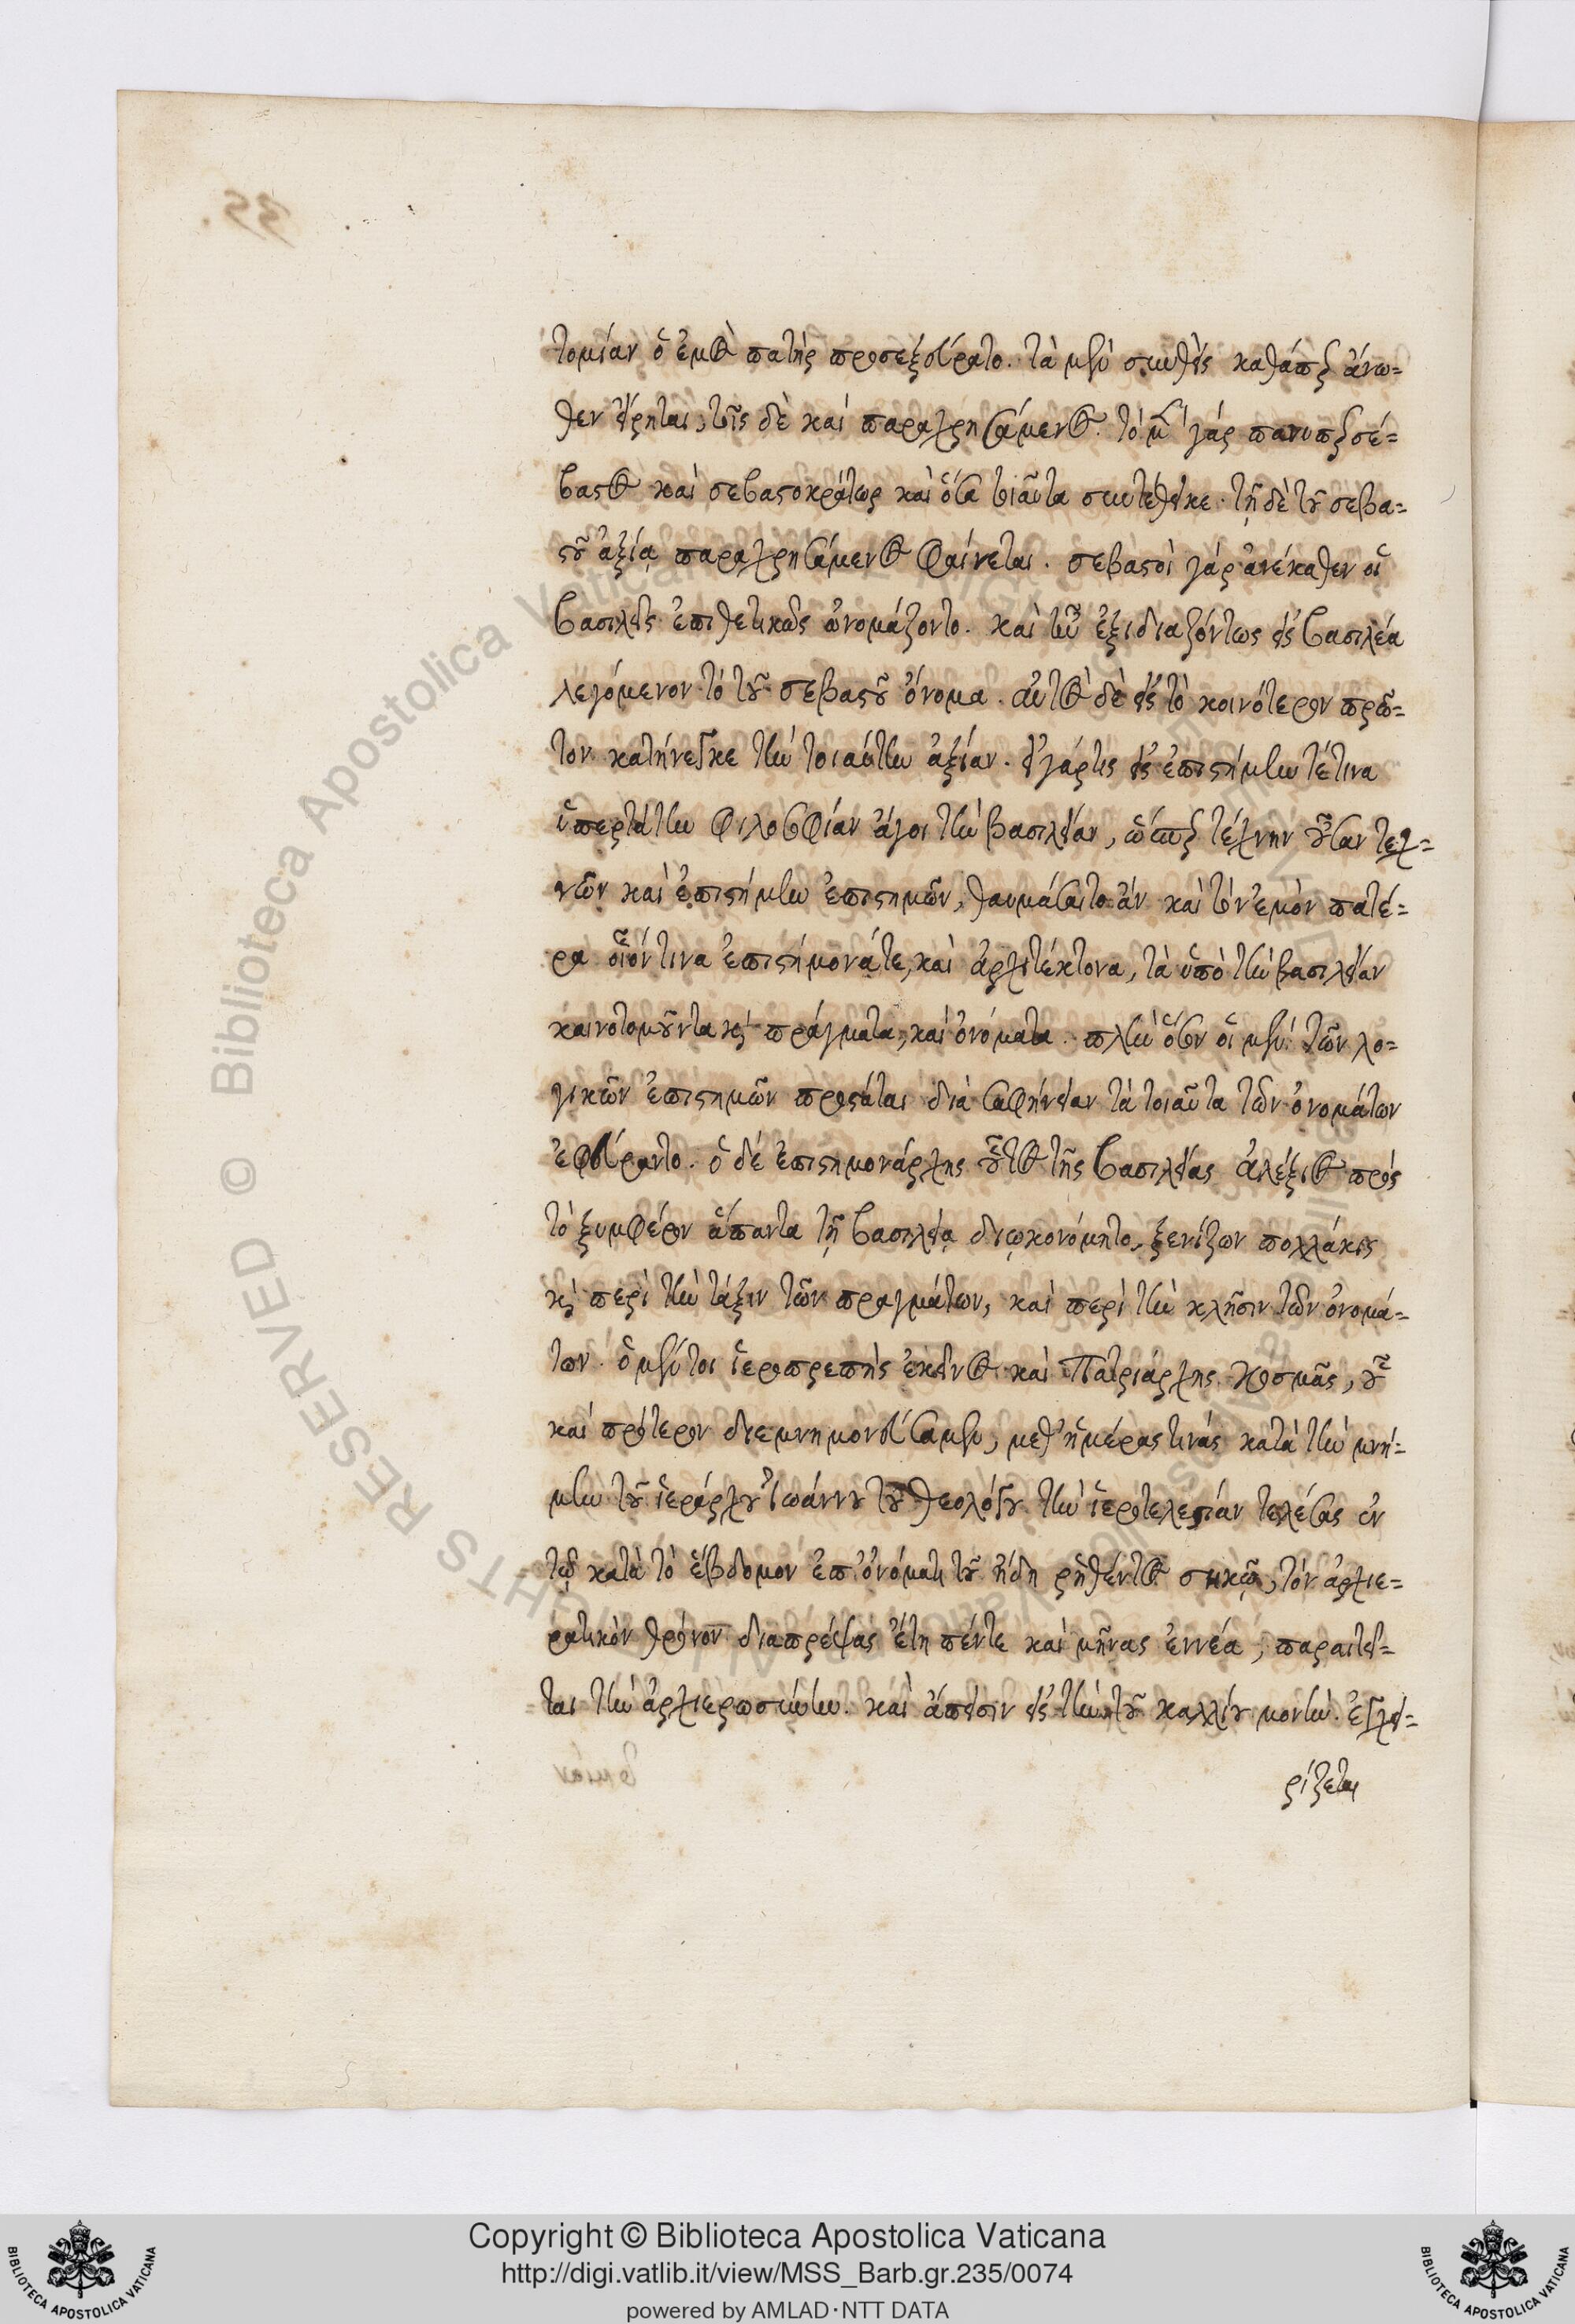 τομίαν ὁ ἐμὸς πατὴρ προσεξεύρατο. τὰ μὲν συνθεὶς καθάπερ ἄνω=
θεν εἴρηται, τοῖς δὲ καὶ παραχρησάμενος. τὸ μὲν γάρ πανυπερσέ=
βαστος καὶ σεβαστοκράτωρ καὶ ὅσα τοιαῦτα συντέθεικε. τῇ δὲ τοῦ σεβα=
στοῦ ἀξίᾳ παραχρησάμενος φαίνεται. σεβαστοὶ γάρ ἀνέκαθεν οἱ
βασιλεῖς ἐπιθετικῶς ὠνομάζοντο. καὶ ἦν ἐξιδιαζόντως εἰς βασιλέα
λεγόμενον τὸ τοῦ σεβαστοῦ ὄνομα. αὐτὸς δὲ εἰς τὸ κοινότερον πρῶ=
τον κατήνεγκε τὴν τοιαύτην ἀξίαν. εἰ γάρ τις εἰς ἐπιστήμην τέ τινα
ὑπερτάτην φιλοσοφίαν ἄγοι τὴν βασιλείαν, ὥσπερ τέχνην οὖσαν τεχ=
νῶν καὶ ἐπιστήμην ἐπιστημῶν, θαυμάσαιτο ἄν καὶ τὸν ἐμὸν πατέ=
ρα οἷόν τινα ἐπιστήμονά τε, καὶ ἀρχιτέκτονα, τὰ ὑπὸ τὴν βασιλείαν
καινοτομοῦντα καὶ πράγματα, καὶ ὀνόματα. πλὴν ὅσον οἱ μὲν τῶν λο=
γικῶν ἐπιστημῶν προστάται διὰ σαφήνειαν τὰ τοιαῦτα τῶν ὀνομάτων
ἐφεύραντο. ὁ δὲ ἐπιστημονάρχης οὗτος τῆς βασιλείας ἀλέξιος πρὸς
τὸ ξυμφέρον ἅπαντα τῇ βασιλείᾳ διῳκονόμητο, ξενίζων πολλάκις
καὶ περὶ τὴν τάξιν τῶν πραγμάτων, καὶ περὶ τὴν κλῆσιν τῶν ὀνομά=
των. ὁ μέντοι ἱεροπρεπὴς ἐκεῖνος καὶ Πατριάρχης Κοσμᾶς, οὗ
καὶ πρότερον διεμνημονεύσαμεν, μεθ' ἡμέρας τινάς κατὰ τὴν μνή=
μην τοῦ ἱεράρχου Ἰωάννου τοῦ θεολόγου τὴν ἱεροτελεστίαν τελέσας ἐν
τῷ κατὰ τὸ ἕβδομον ἐπ' ὀνόματι τοῦ ἤδη ῥηθέντος σηκῷ, τὸν ἀρχιε=
ρατικὸν θρόνον διαπρέψας ἔτη πέντε καὶ μῆνας ἐννέα, παραιτεῖ=
ται τὴν ἀρχιερωσύνην. καὶ ἄπεισιν εἰς τὴν τοῦ καλλίου μονὴν. ἐγχει=
ρίζεται